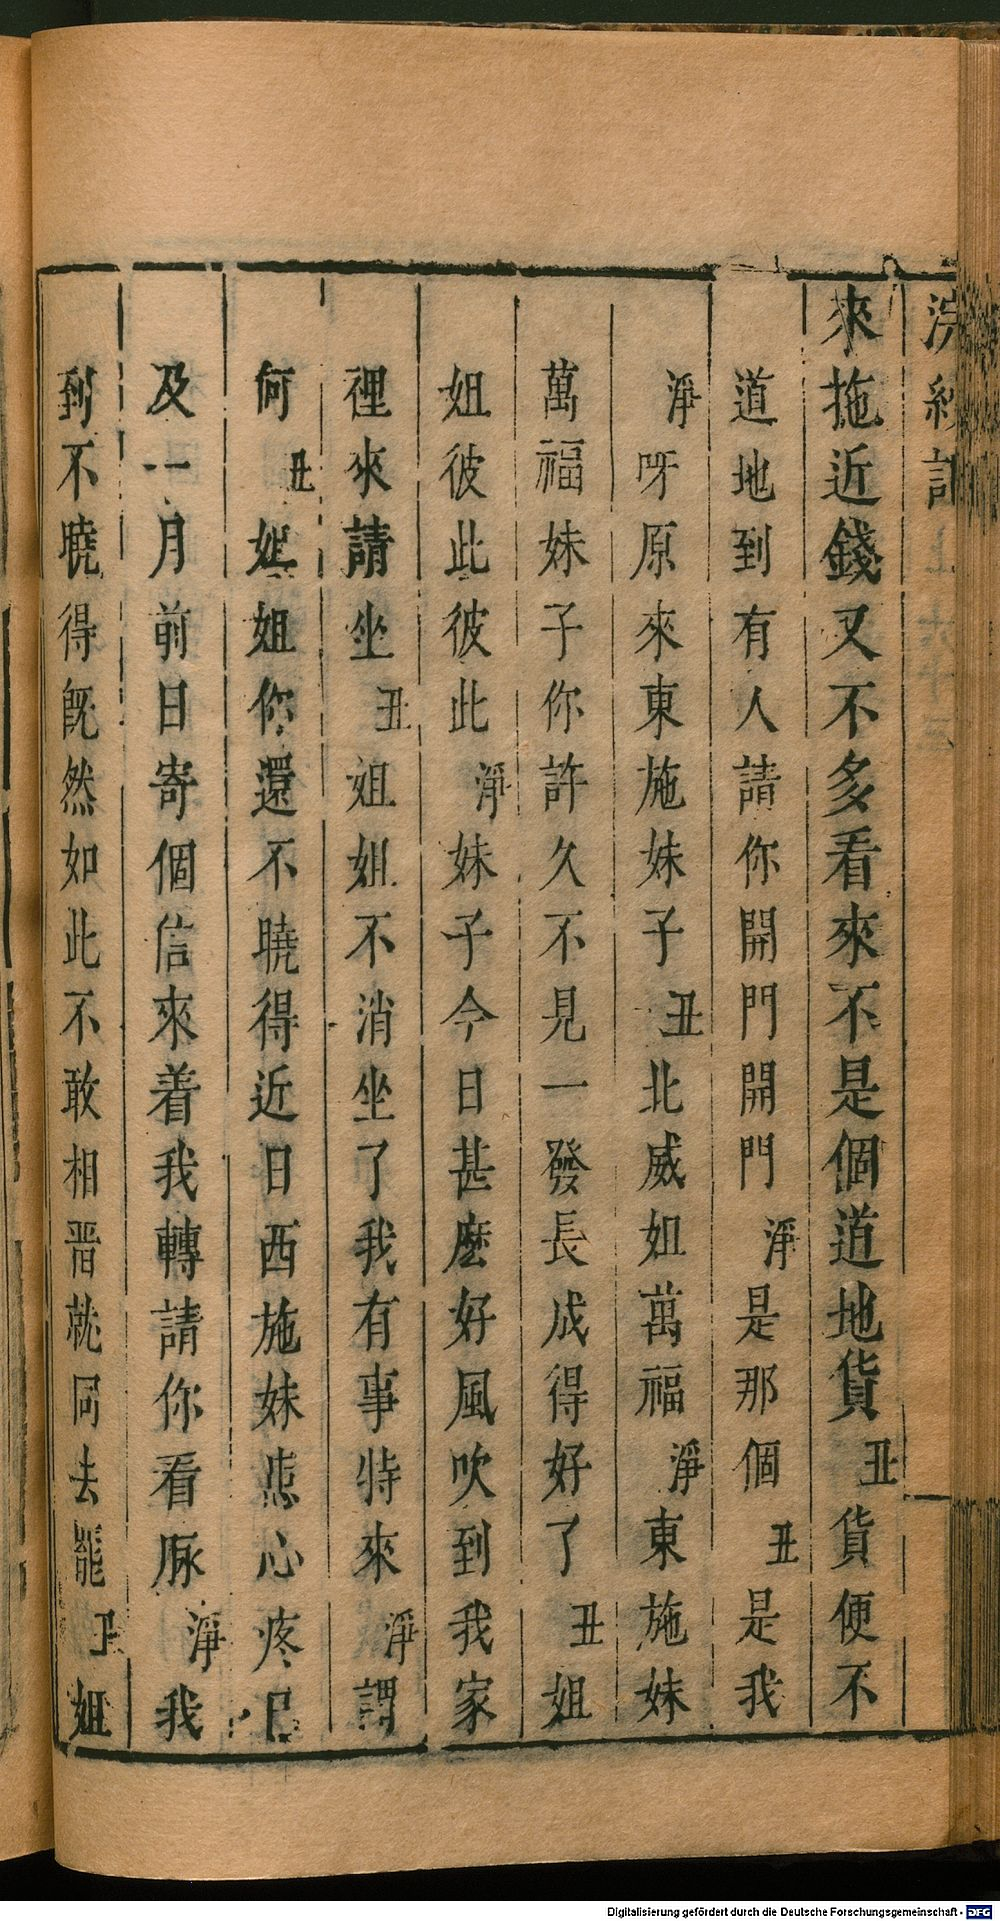 浣紗記
來拖近錢又不多看來不是個道地貨丑貨便不
道地到有人請你開門開門淨是那個丑是我
淨呀原來東施妹子丑北威姐萬福淨東施妹
萬福妹子你許久不見一發長成得好了丑姐
姐彼此彼此淨妹子今日甚麽好風吹到我家
裡來請坐丑姐姐不消坐了我有事特來淨謂
何丑姐姐你還不曉得近日西施妹患心疼已
及一月前日寄個信來着我轉請你看脉淨我
到不曉得旣然如此不敢相晋就同去罷丑姐
Digitalisierung gefördert durch die Deutsche Forschungsgemeinschaft - DFG